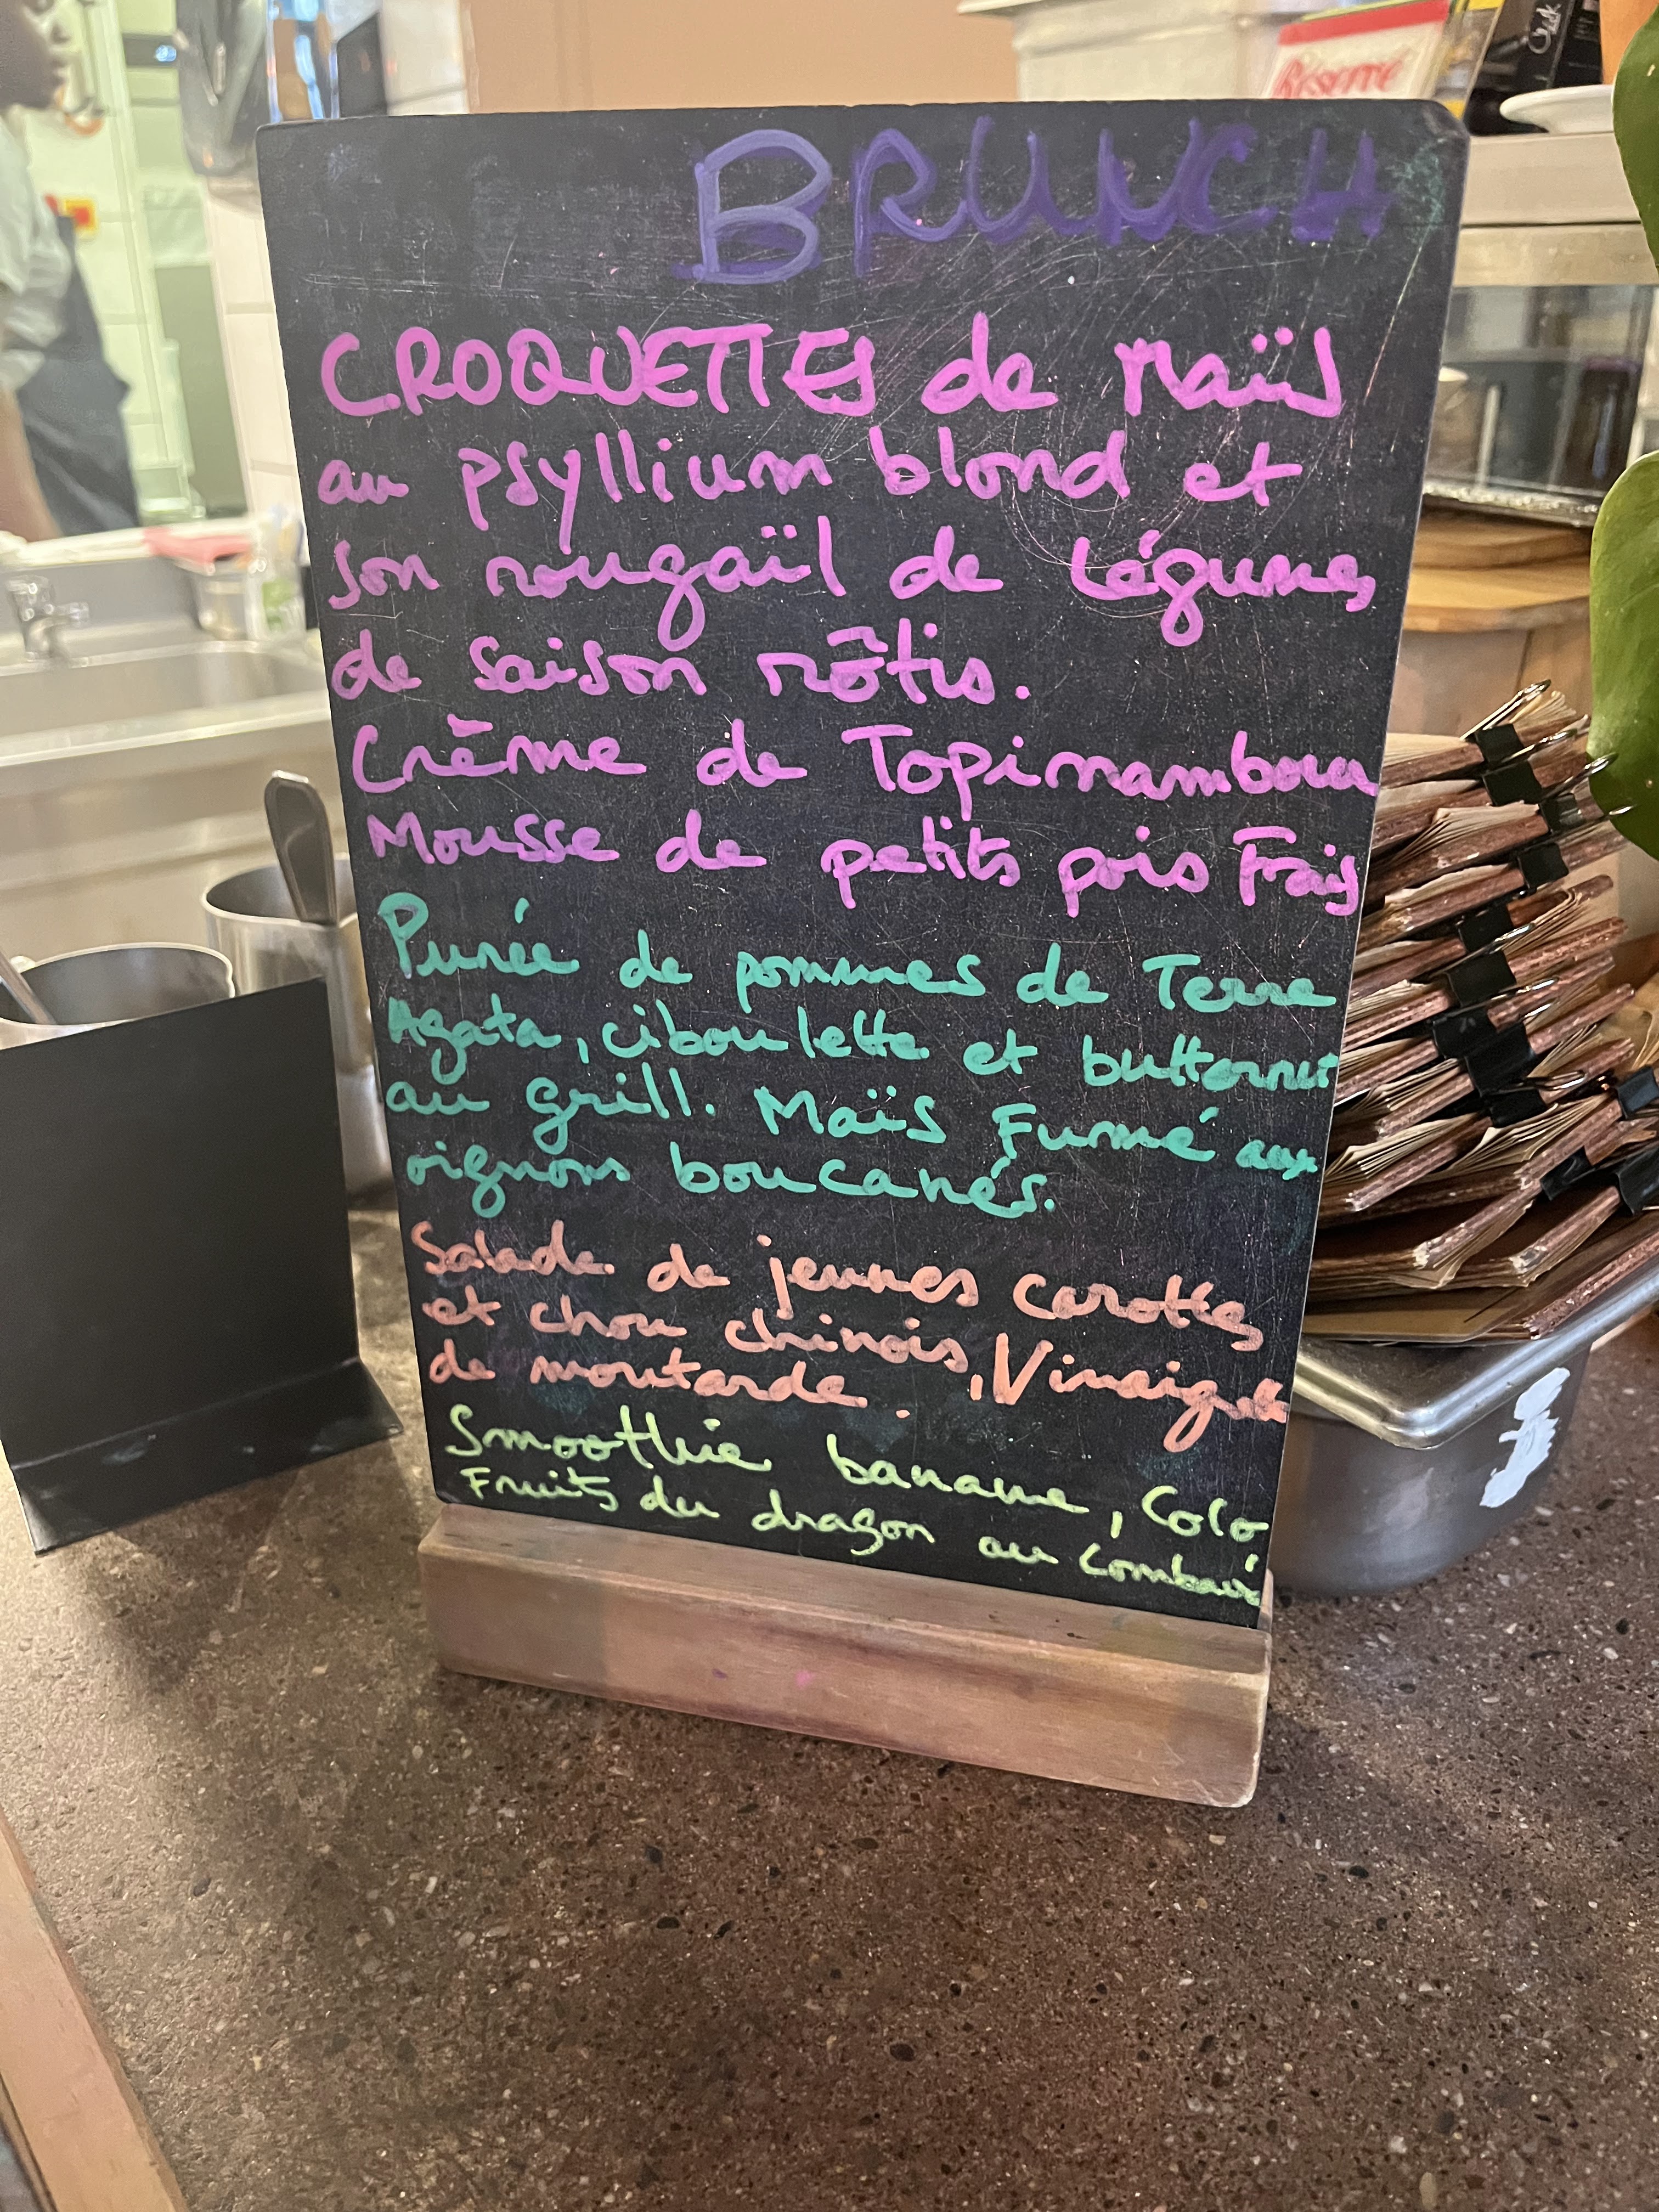 Réservé
BRUNCH
CROQUETTES de Maïs
au psyllium blond et
son rougaïl de légumes
de saison rôtis.
Crème de Topinambour
Mousse de petits pois Frais
Purée de pommes de Terre
Agata, ciboulette et butternut
au grill. Maïs Fumé aux
oignons boucanés.
Salade de jeunes carottes
et chou chinois, Vinaigrette
de moutarde.
Smoothie banane, Coco
Fruits du dragon au combava